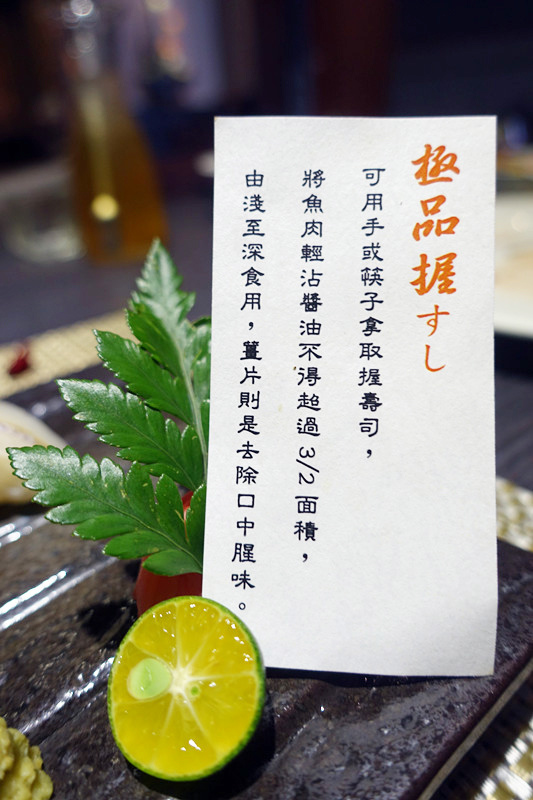 極品握すし
可用手或筷子拿取握壽司，
將魚肉輕沾醬油不得超過 3/2 面積，
由淺至深食用，薑片則是去除口中腥味。